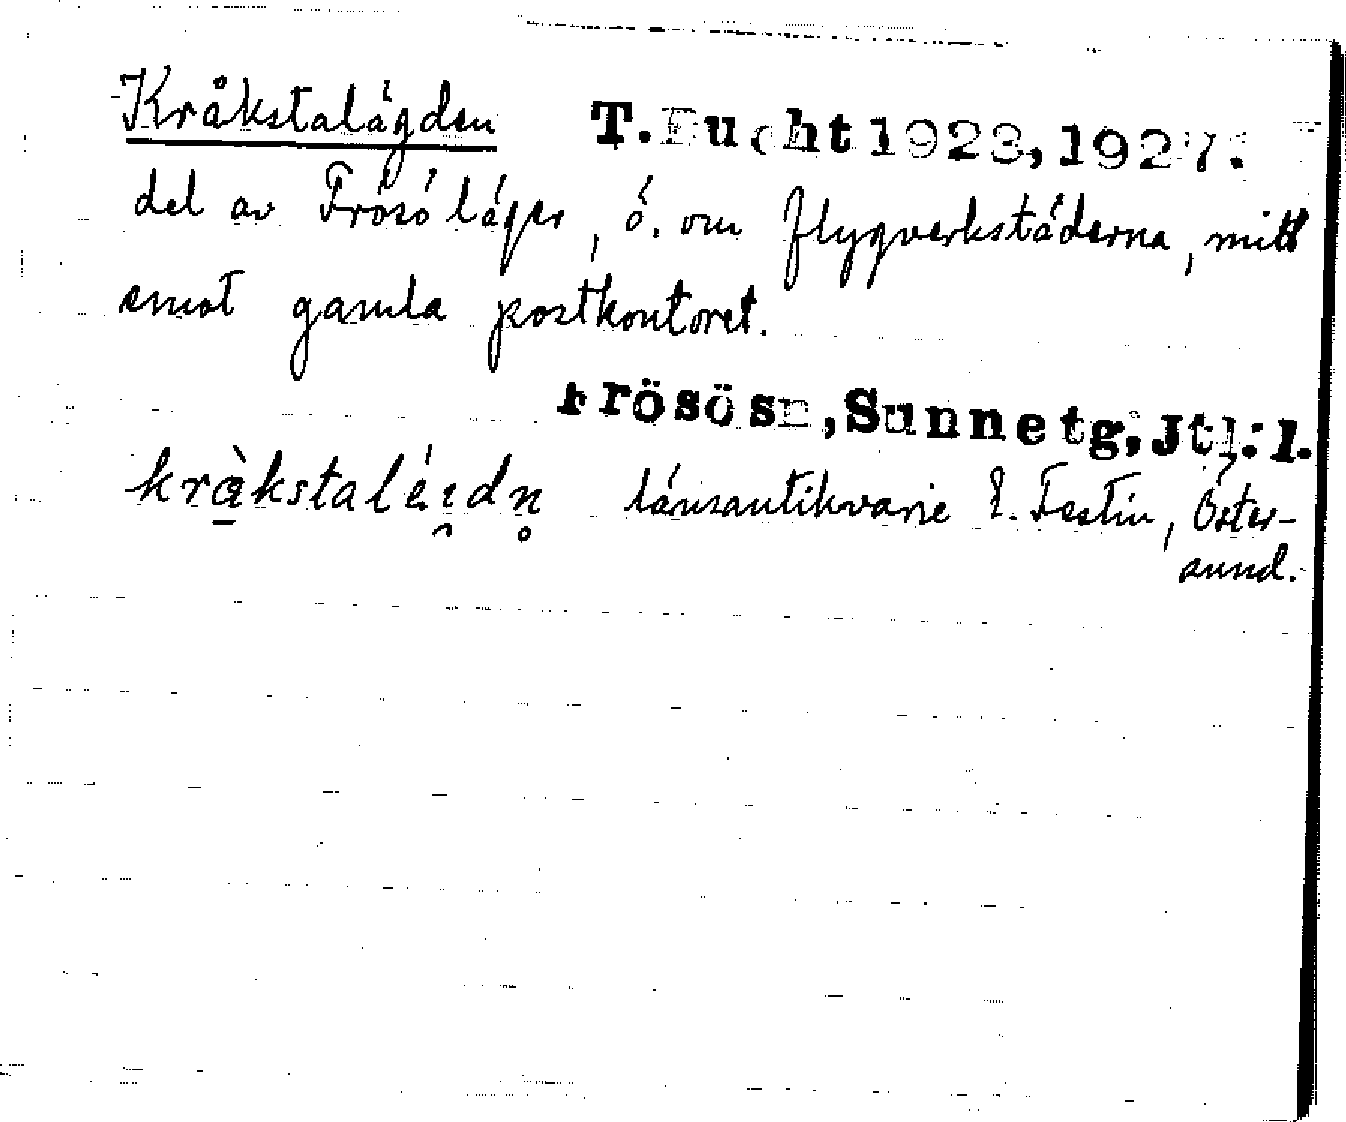 Kråkstalägden T. Bucht 1923, 1927.
del av Frösö läger, ö. om flygverkstäderna, mitt
emot gamla postkontoret.
Frösösn, Sunnetg, Jtl:l.
länsantikvarie E. Festin, Öster-
sund.